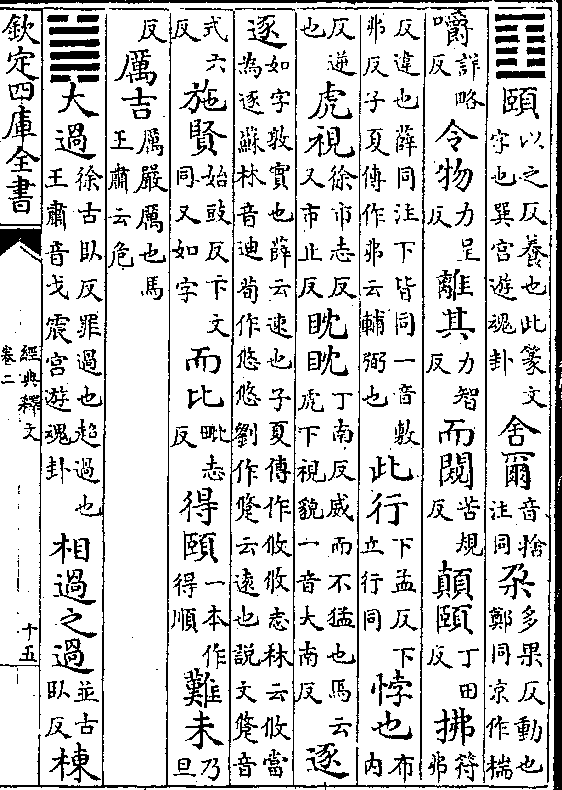 ䷚頤以之反養也此篆文字也巽宮遊魂卦舍爾音捨注同朶多果反動也鄭同京作椯
嚼詳略反令物力呈反離其力智反而闚苦規反顛頤丁田反拂符弗
反違也薛同注下皆同一音敷弗反子夏傳作弗云輔弼也此行下孟反下立行同悖也布内
反逆也虎視徐市志反又市止反眈眈丁南反威而不猛也馬云虎下視貌一音大南反逐
如字敦實也薛云速也子夏傳作攸攸志林云攸當為逐蘇林音迪荀作悠悠劉作跾云遠也説文跾音
式六反施賢始豉反卞文同又如字而比毗志反得頤一本作得順難未乃旦
反厲吉厲嚴厲也馬王肅云危
䷛大過徐古臥反罪過也超過也王肅音戈震宮遊魂卦相過之過並古臥反棟
欽定四庫全書
經典釋文
卷二
十五